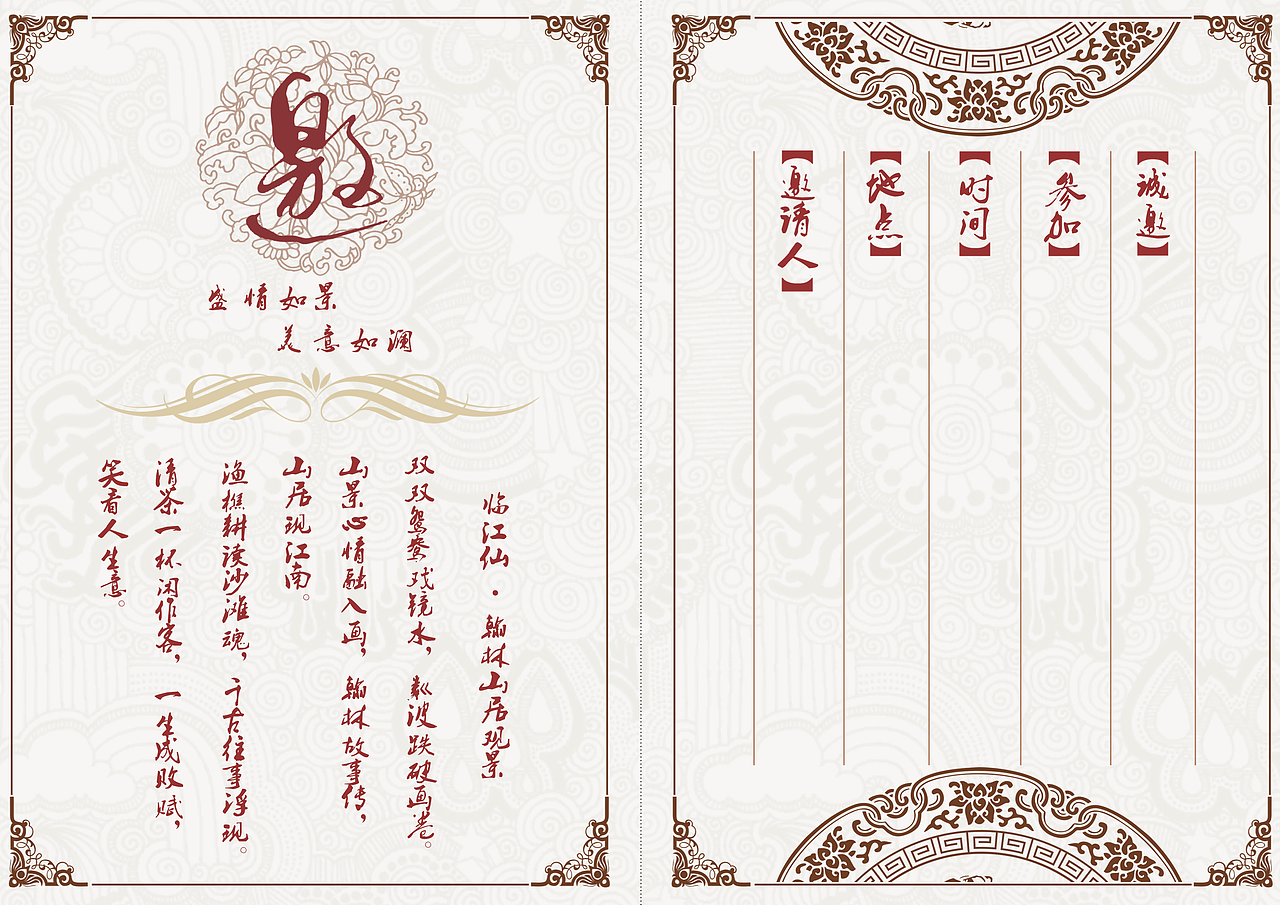 邀
盛情如景
美意如澜
临江仙·翰林山居观景
双双鸳鸯戏镜水，波跌破画卷。
山景心情融入画，翰林故事传，
山居现江南。
渔樵耕读沙滩魂，千古往事浮现。
清茶一杯闲作客，一生成败赋，
笑看人生意。
【诚邀】
【参加】
【时间】
【地点】
【邀请人】